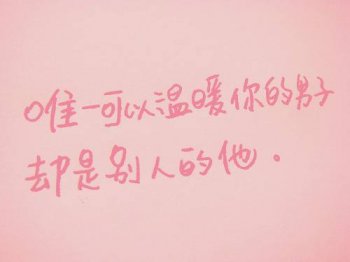 唯一可以温暖你的男子
却是别人的他.